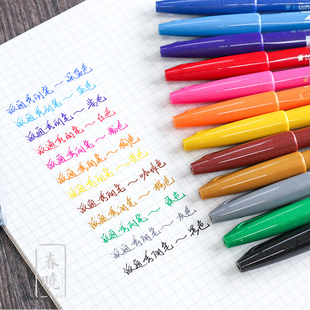 派通秀丽笔～深蓝色
派通秀丽笔～蓝色
派通秀丽笔～紫色
派通秀丽笔～红色
派通秀丽笔～粉色
派通秀丽笔～橘色
派通秀丽笔～黄色
派通秀丽笔～咖啡色
派通秀丽笔～棕色
派通秀丽笔～绿色
派通秀丽笔～灰色
派通秀丽笔～黑色
春晓